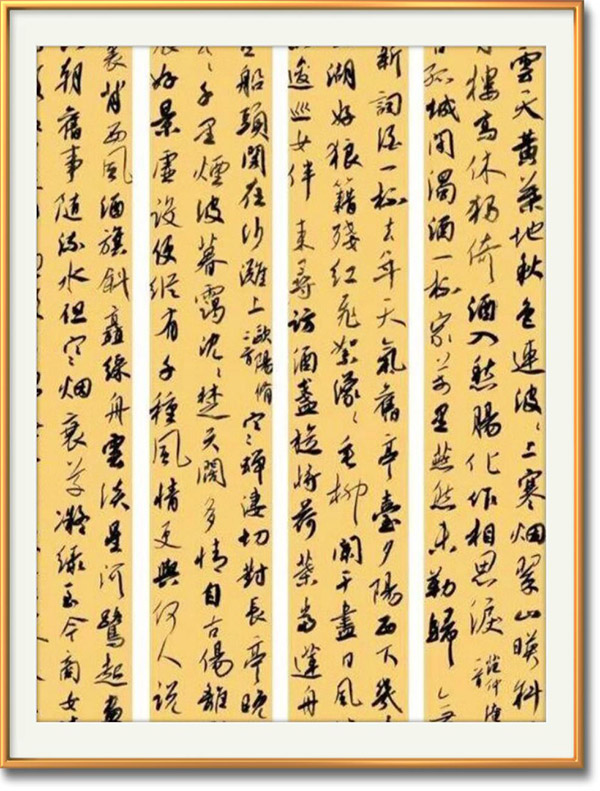 雲天黄葉地秋色連波〻上寒烟翠山映斜
月樓高休獨倚酒入愁腸化作相思淚 范仲淹
孤城閉濁酒一杯家萬里燕然未勒歸
新詞酒一杯去年天氣舊亭臺夕陽西下幾
湖好狼籍殘紅飛絮濛〻垂柳闌干盡日風
逡巡女伴來尋訪酒盞旋將荷葉當蓮舟
船頭閣在沙灘上 歐陽脩二首 寒蟬淒切對長亭晚
去〻千里煙波暮靄沉〻楚天闊多情自古傷離
辰好景虛設便縱有千種風情更與何人説
背西風酒旗斜矗綵舟雲淡星河鷺起畫
朝舊事隨流水但寒烟衰草凝緑至今商女